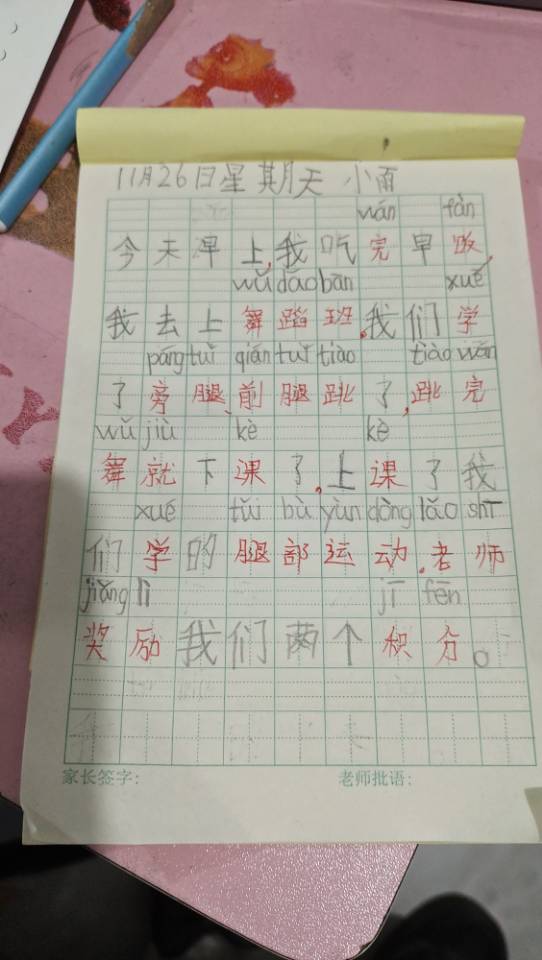 11月26日星期天 小雨
wán fàn
今天早上,我吃完早饭,
wǔ dǎo bān xué
我去上舞蹈班。我们学
páng tuǐ qián tuǐ tiào tiào wán
了旁腿、前腿跳了,跳完
wǔ jiù kè kè
舞就下课了。上课了我
xué tuǐ bù yùn dòng lǎo shī
们学的腿部运动。老师
jiǎng lì jī fēn
奖励我们两个积分。
家长签字: 老师批语: